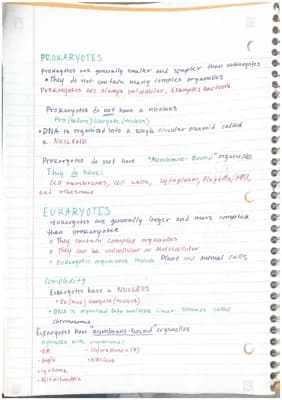 PROKARYOTES
Prokaryotes are generally smaller and simpler than eukaryotes
• They do not contain many complex organelles
Prokaryotes are always unicellular. Examples bacteria
Prokaryotes do not have a nucleus
Pro (before) karyote (nucleus)
• DNA is organized into a single circular plasmid called
a NUCLEOID
Prokaryotes do not have "Membrane-Bound" organelles
They do have:
Cell membranes, cell walls, cytoplasm, flagella/pili,
and ribosomes
EUKARYOTES
• eukaryotes are generally larger and more complex
than prokaryotes
• They contain complex organelles
• They can be unicellular or multicellular
• Eukaryotic organisms include Plant and animal cells
Complexity
Eukaryotes have a NUCLEUS
• Eu (true) karyote (nucleus)
• DNA is organized into multiple linear strands called
chromosomes
Eukaryotes have "membrane-bound" organelles
Organelles with membranes:
• ER
• Chloroplasts (P)
• Golgi
• Nucleus
• Lysosome
• Mitochondria